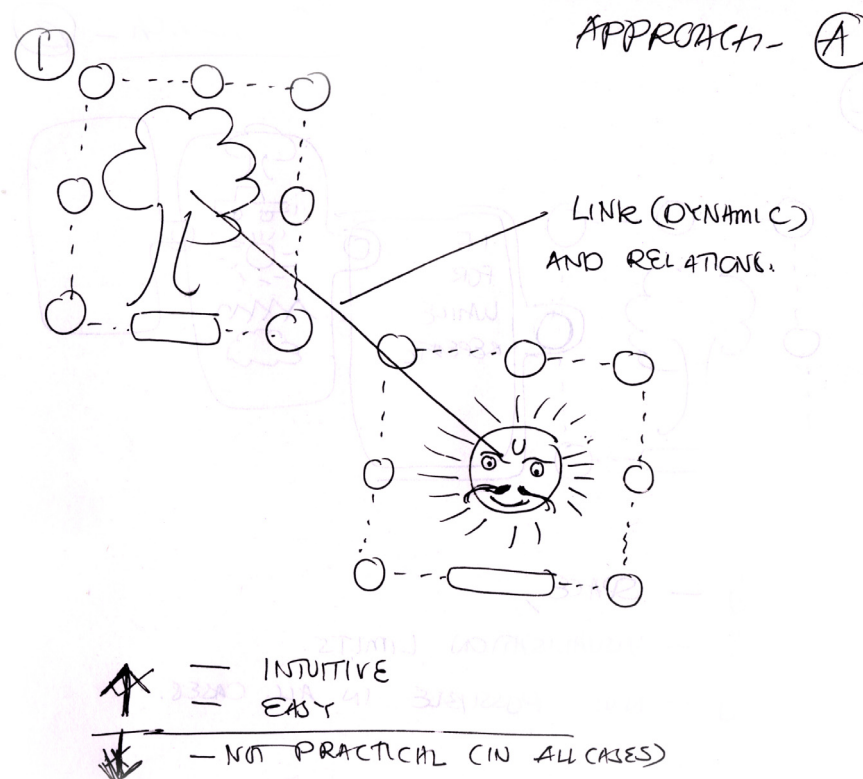 APPROACH- A
1
LINK (DYNAMIC)
AND RELATIONS.
— INTUITIVE
— EASY
— NOT PRACTICAL (IN ALL CASES)